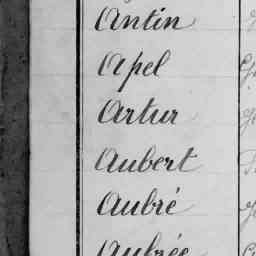 Antin
Apel
Artur
Aubert
Aubré
Aubrée